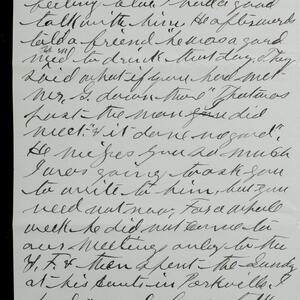 feeling blue I had a good
talk with him He afterwards
told a friend "he was a good
to drink that day. They
said what if you had met
Mr. G. down there" That was
just the man you did
meet "& it done no good".
He misses you so much
I was going to ask you
to write to him, but you
need not now, For a whole
week he did not come to
our meetings only to the
& then spent the Sunday
at his aunts in Parkville. I